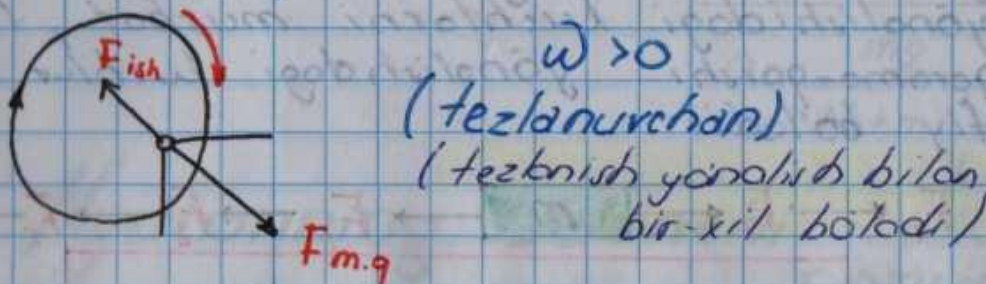 F ish
ω > 0
(tezlanuvchan)
(tezlanish yónalish bilan
bir-xil bóladi)
F m.q